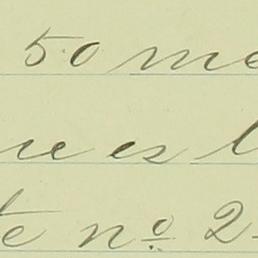 50 me
ue es l
te nº 2-